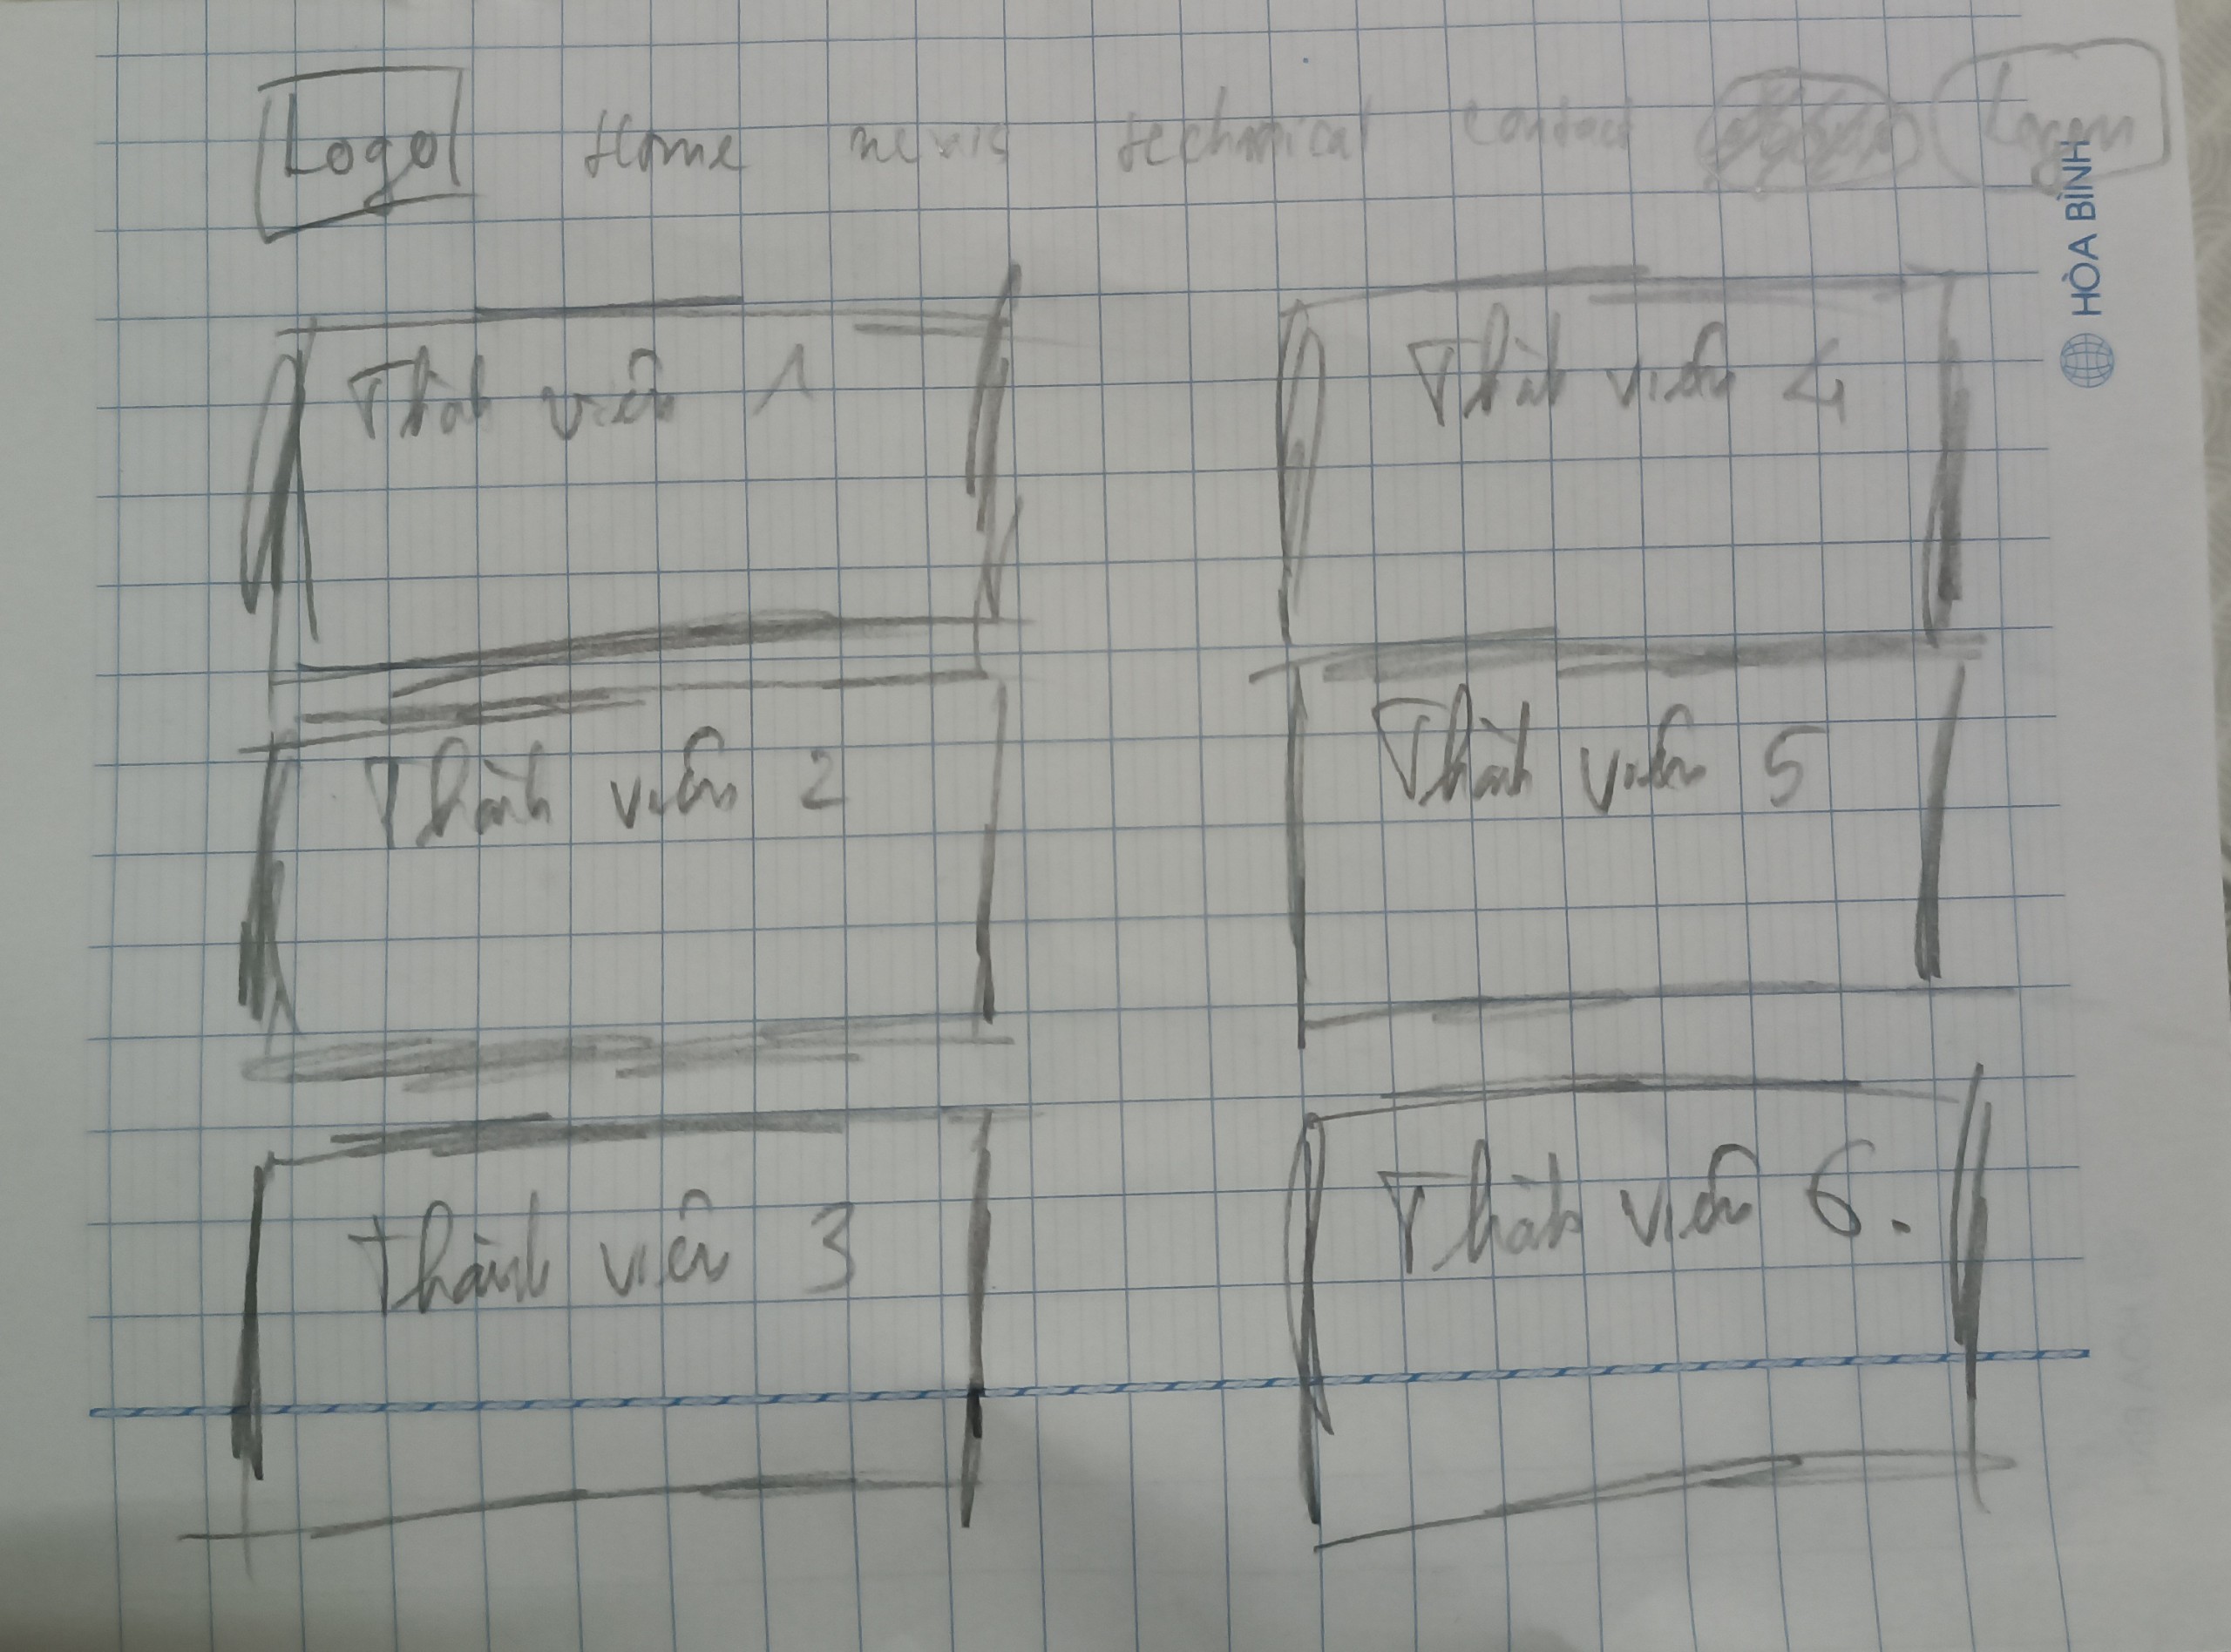 Logo Home news technical contact Logon
HÒA BÌNH
Thàh viên 1
Thàh viên 4
Thàh viên 2
Thàh viên 5
Thành viên 3
Thàh viên 6.